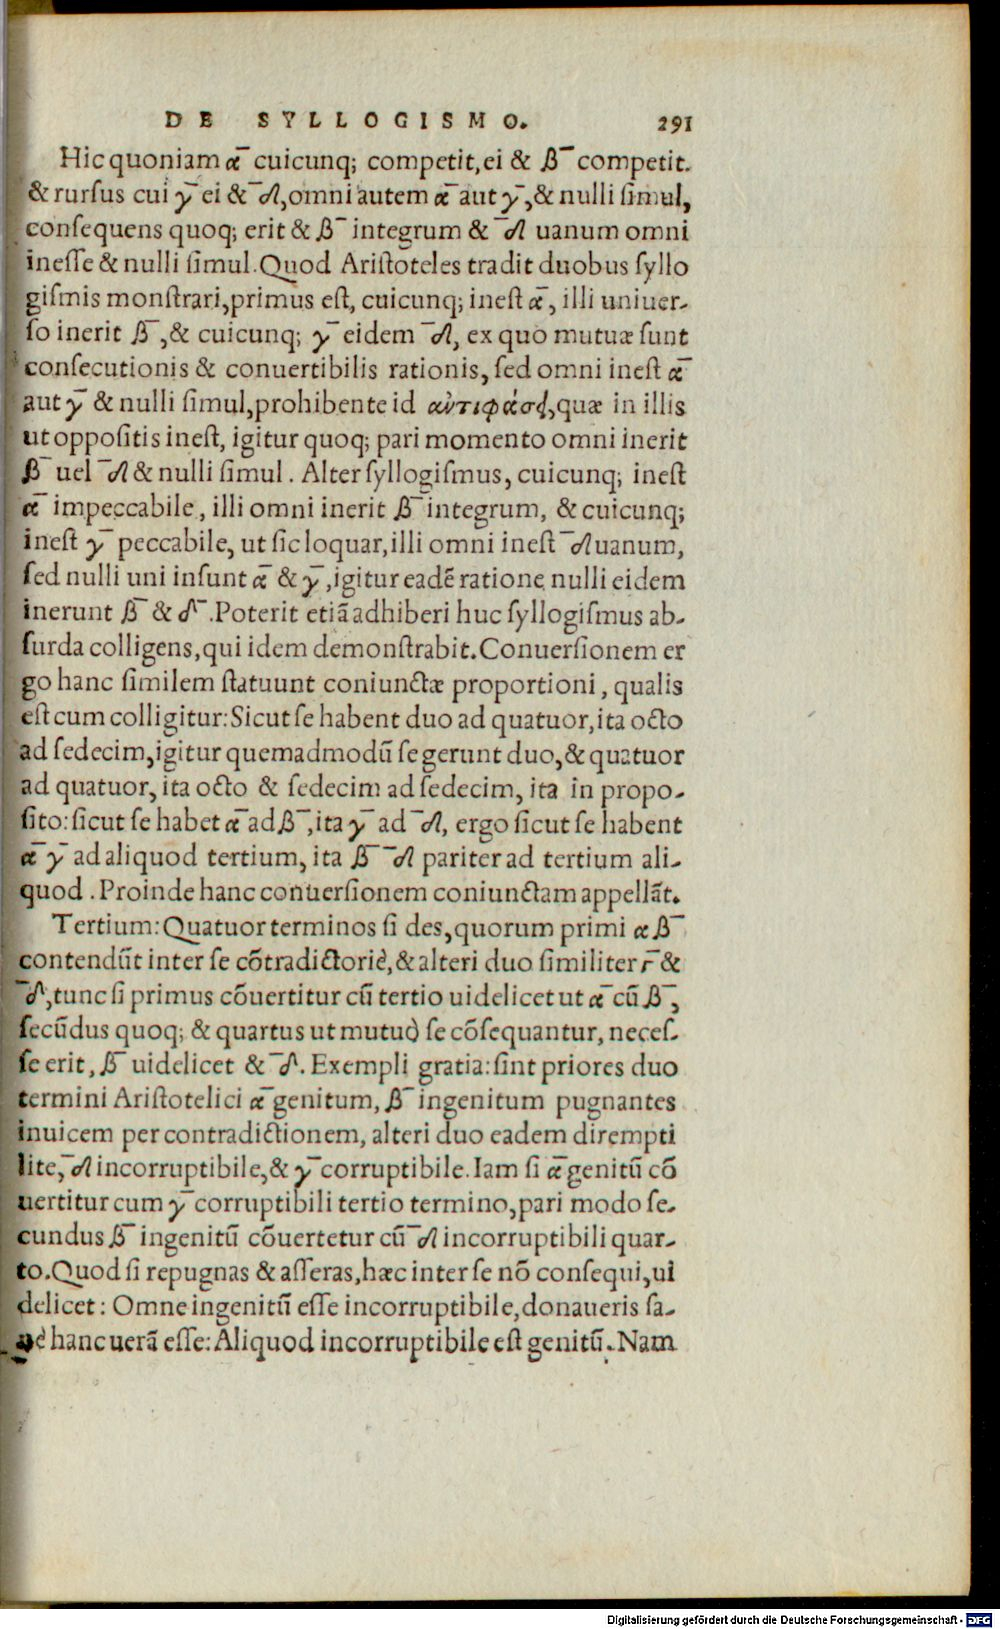 DE SYLLOGISMO. 291
Hic quoniam α̅ cuicunq; competit, ei & β̅ competit.
& rursus cui γ̅ ei & ̅δ, omni autem α̅ aut γ̅, & nulli simul,
consequens quoq; erit & β̅ integrum & ̅δ uanum omni
inesse & nulli simul. Quod Aristoteles tradit duobus syllo
gismis monstrari, primus est, cuicunq; inest α̅, illi uniuer-
so inerit β̅, & cuicunq; γ̅ eidem ̅δ, ex quo mutuæ sunt
consecutionis & conuertibilis rationis, sed omni inest α̅
aut γ̅ & nulli simul, prohibente id ἀντιφάσει, quæ in illis
ut oppositis inest, igitur quoq; pari momento omni inerit
β̅ uel ̅δ & nulli simul. Alter syllogismus, cuicunq; inest
α̅ impeccabile, illi omni inerit β̅ integrum, & cuicunq;
inest γ̅ peccabile, ut sic loquar, illi omni inest ̅δ uanum,
sed nulli uni insunt α̅ & γ̅, igitur eadē ratione nulli eidem
inerunt β̅ & δ̅. Poterit etiā adhiberi huc syllogismus ab-
surda colligens, qui idem demonstrabit. Conuersionem er
go hanc similem statuunt coniunctæ proportioni, qualis
est cum colligitur: Sicut se habent duo ad quatuor, ita octo
ad sedecim, igitur quemadmodū se gerunt duo, & quatuor
ad quatuor, ita octo & sedecim ad sedecim, ita in propo-
sito: sicut se habet α̅ ad β̅, ita γ̅ ad ̅δ, ergo sicut se habent
α̅ γ̅ ad aliquod tertium, ita β̅ ̅δ pariter ad tertium ali-
quod. Proinde hanc conuersionem coniunctam appellāt.
Tertium: Quatuor terminos si des, quorum primi α β̅
contendūt inter se cōtradictoriè, & alteri duo similiter γ̅ &
̅δ, tunc si primus cōuertitur cū tertio uidelicet ut α̅ cū β̅,
secūdus quoq; & quartus ut mutuò se cōsequantur, neces-
se erit, β̅ uidelicet & ̅δ. Exempli gratia: sint priores duo
termini Aristotelici α̅ genitum, β̅ ingenitum pugnantes
inuicem per contradictionem, alteri duo eadem dirempti
lite, ̅δ incorruptibile, & γ̅ corruptibile. Iam si α̅ genitū cō
uertitur cum γ̅ corruptibili tertio termino, pari modo se-
cundus β̅ ingenitū cōuertetur cū ̅δ incorruptibili quar-
to. Quod si repugnas & asseras, hæc inter se nō consequi, ui
delicet: Omne ingenitū esse incorruptibile, donaueris sa-
nè hanc uerā esse: Aliquod incorruptibile est genitū. Nam
Digitalisierung gefördert durch die Deutsche Forschungsgemeinschaft - DFG